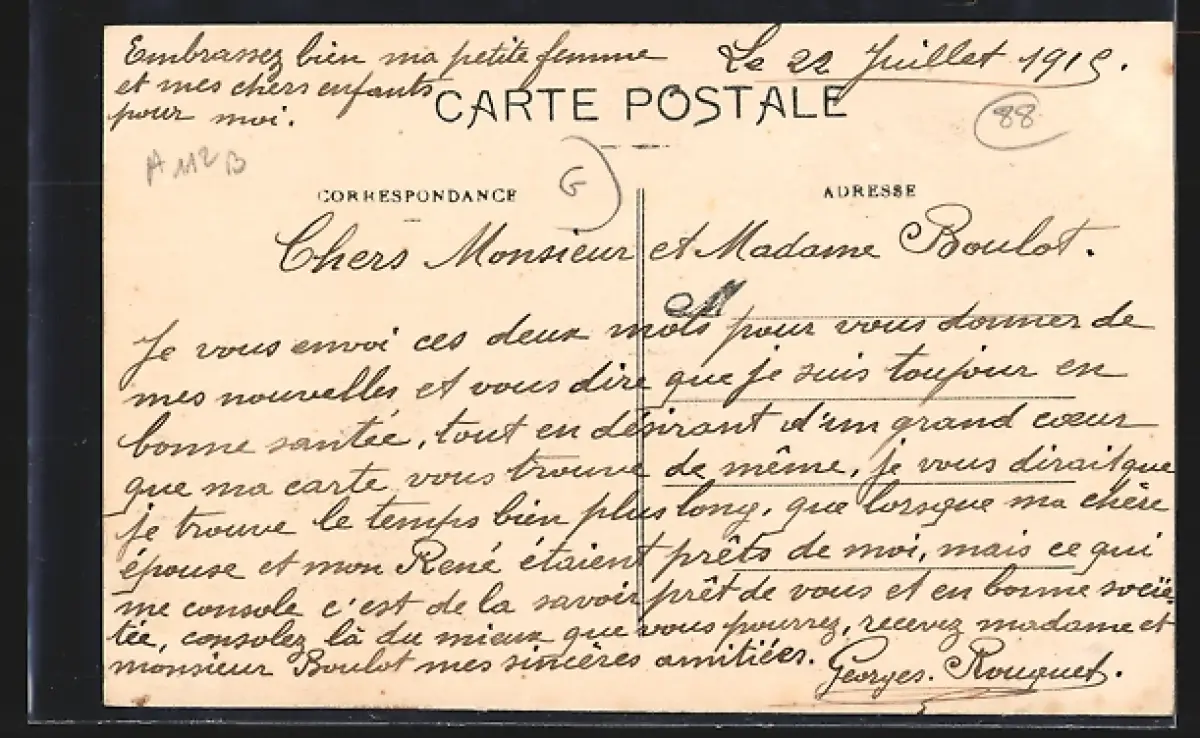 Embrassez bien ma petite femme
et mes chers enfants
pour moi.
Le 22 Juillet 1915.
CARTE POSTALE
88
A 112 B
G
CORRESPONDANCE
ADRESSE
Chers Monsieur et Madame Boulot.
Je vous envoi ces deux mots pour vous donner de
mes nouvelles et vous dire que je suis toujour en
bonne santée, tout en désirant d'un grand cœur
que ma carte vous trouve de même, je vous dirait que
je trouve le temps bien plus long, que lorsque ma chère
épouse et mon René étaient prêts de moi, mais ce qui
me console c'est de la savoir prêt de vous et en bonne socië-
tée, consolez là du mieux que vous pourrez, recevez madame et
monsieur Boulot mes sincères amitiées.
Georges. Rouquet.